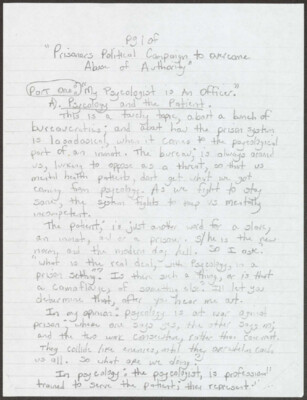 Pg 1 of
"Prisoners Political Campaign to overcome
Abuse of Authority"
Part one: "My Psycologist is An Officer."
A). Psycology and the Patient.
This is a touchy topic, about a bunch of
and how the prison system
is when it comes to the psycological
part of an inmate. The bureau, is always around
us, to oppose as a threat, so that us
mental health patients, dont get what we got
coming from psycology. As we fight to stay
sane, the system fights to say is mentally
incompetent.
The patient, is just another word for a slave,
an inmate, out of a prison. S/he is the new
and the modern day So I ask
"what is the real deal, with Psycology, in a
prison setting". Is there such a thing, or is that
a camoflauge, of something else. Ill let you
determine that, after you hear me out.
In my opinion: psycology is at war against
prison; where one says yes, the other says no;
and the two work rather than
They collide like enemies, until they
us all. So what are we doing.
In psycology: the psycologist, is professionally
trained to serve the patients they represent."